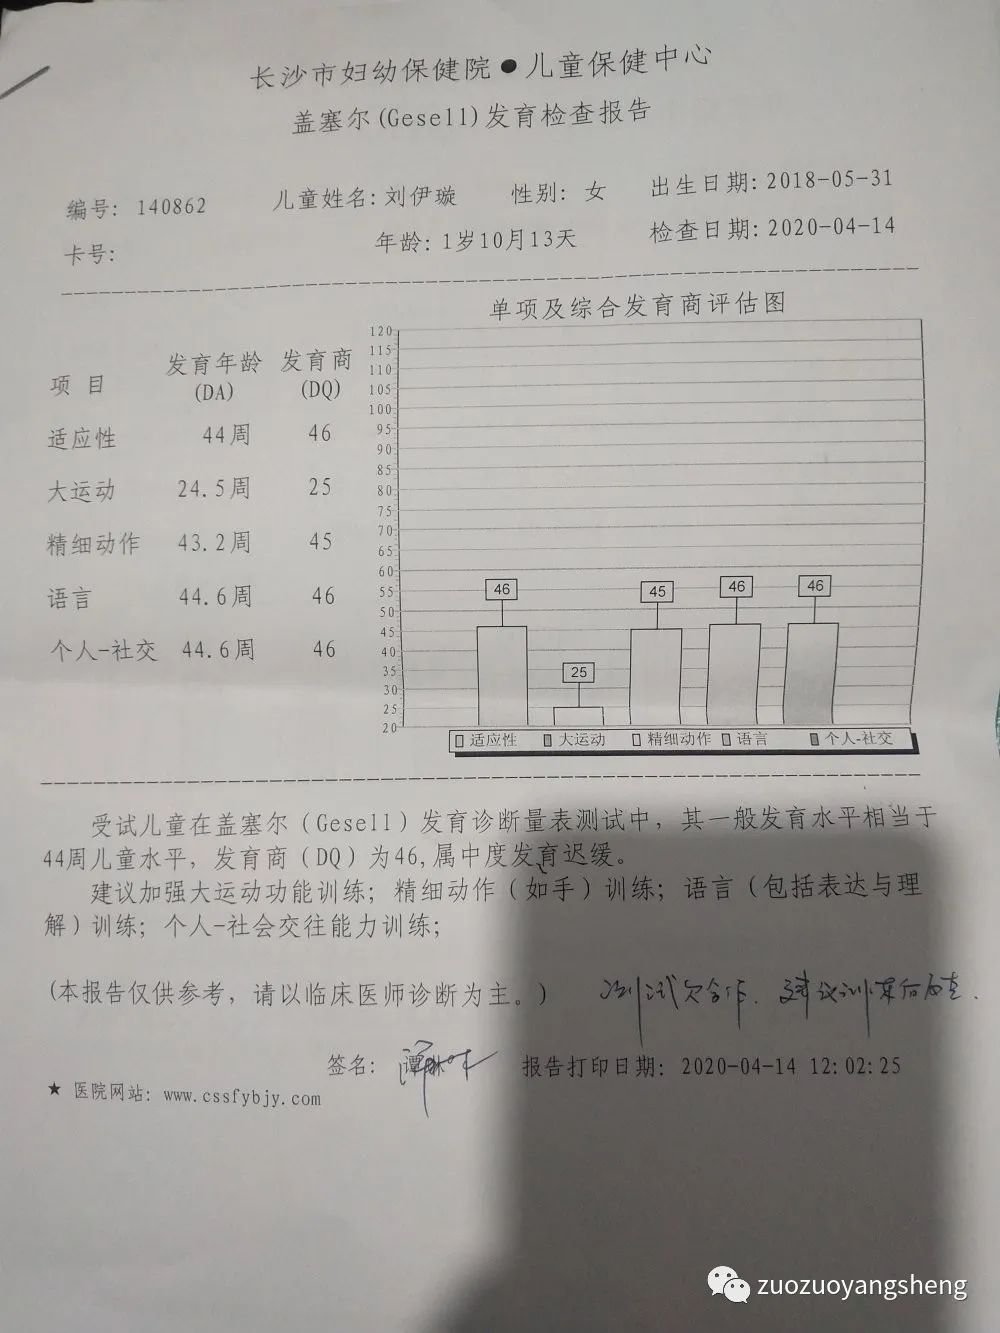 长沙市妇幼保健院●儿童保健中心
盖塞尔(Gesell)发育检查报告
编号: 140862 儿童姓名: 刘伊璇 性别: 女 出生日期: 2018-05-31
卡号: 年龄: 1岁10月13天 检查日期: 2020-04-14
单项及综合发育商评估图
项 目 发育年龄(DA) 发育商(DQ)
适应性 44周 46
大运动 24.5周 25
精细动作 43.2周 45
语言 44.6周 46
个人-社交 44.6周 46
120
115
110
105
100
95
90
85
80
75
70
65
60
55
50
45
40
35
30
25
20
46 25 45 46 46
适应性 大运动 精细动作 语言 个人-社交
受试儿童在盖塞尔(Gesell)发育诊断量表测试中, 其一般发育水平相当于
44周儿童水平, 发育商(DQ)为46,属中度发育迟缓。
建议加强大运动功能训练; 精细动作(如手)训练; 语言(包括表达与理
解)训练; 个人-社会交往能力训练;
(本报告仅供参考, 请以临床医师诊断为主。) 测试欠合作. 建议训练后复查.
签名: 报告打印日期: 2020-04-14 12:02:25
★ 医院网站: www.cssfybjy.com
zuozuoyangsheng